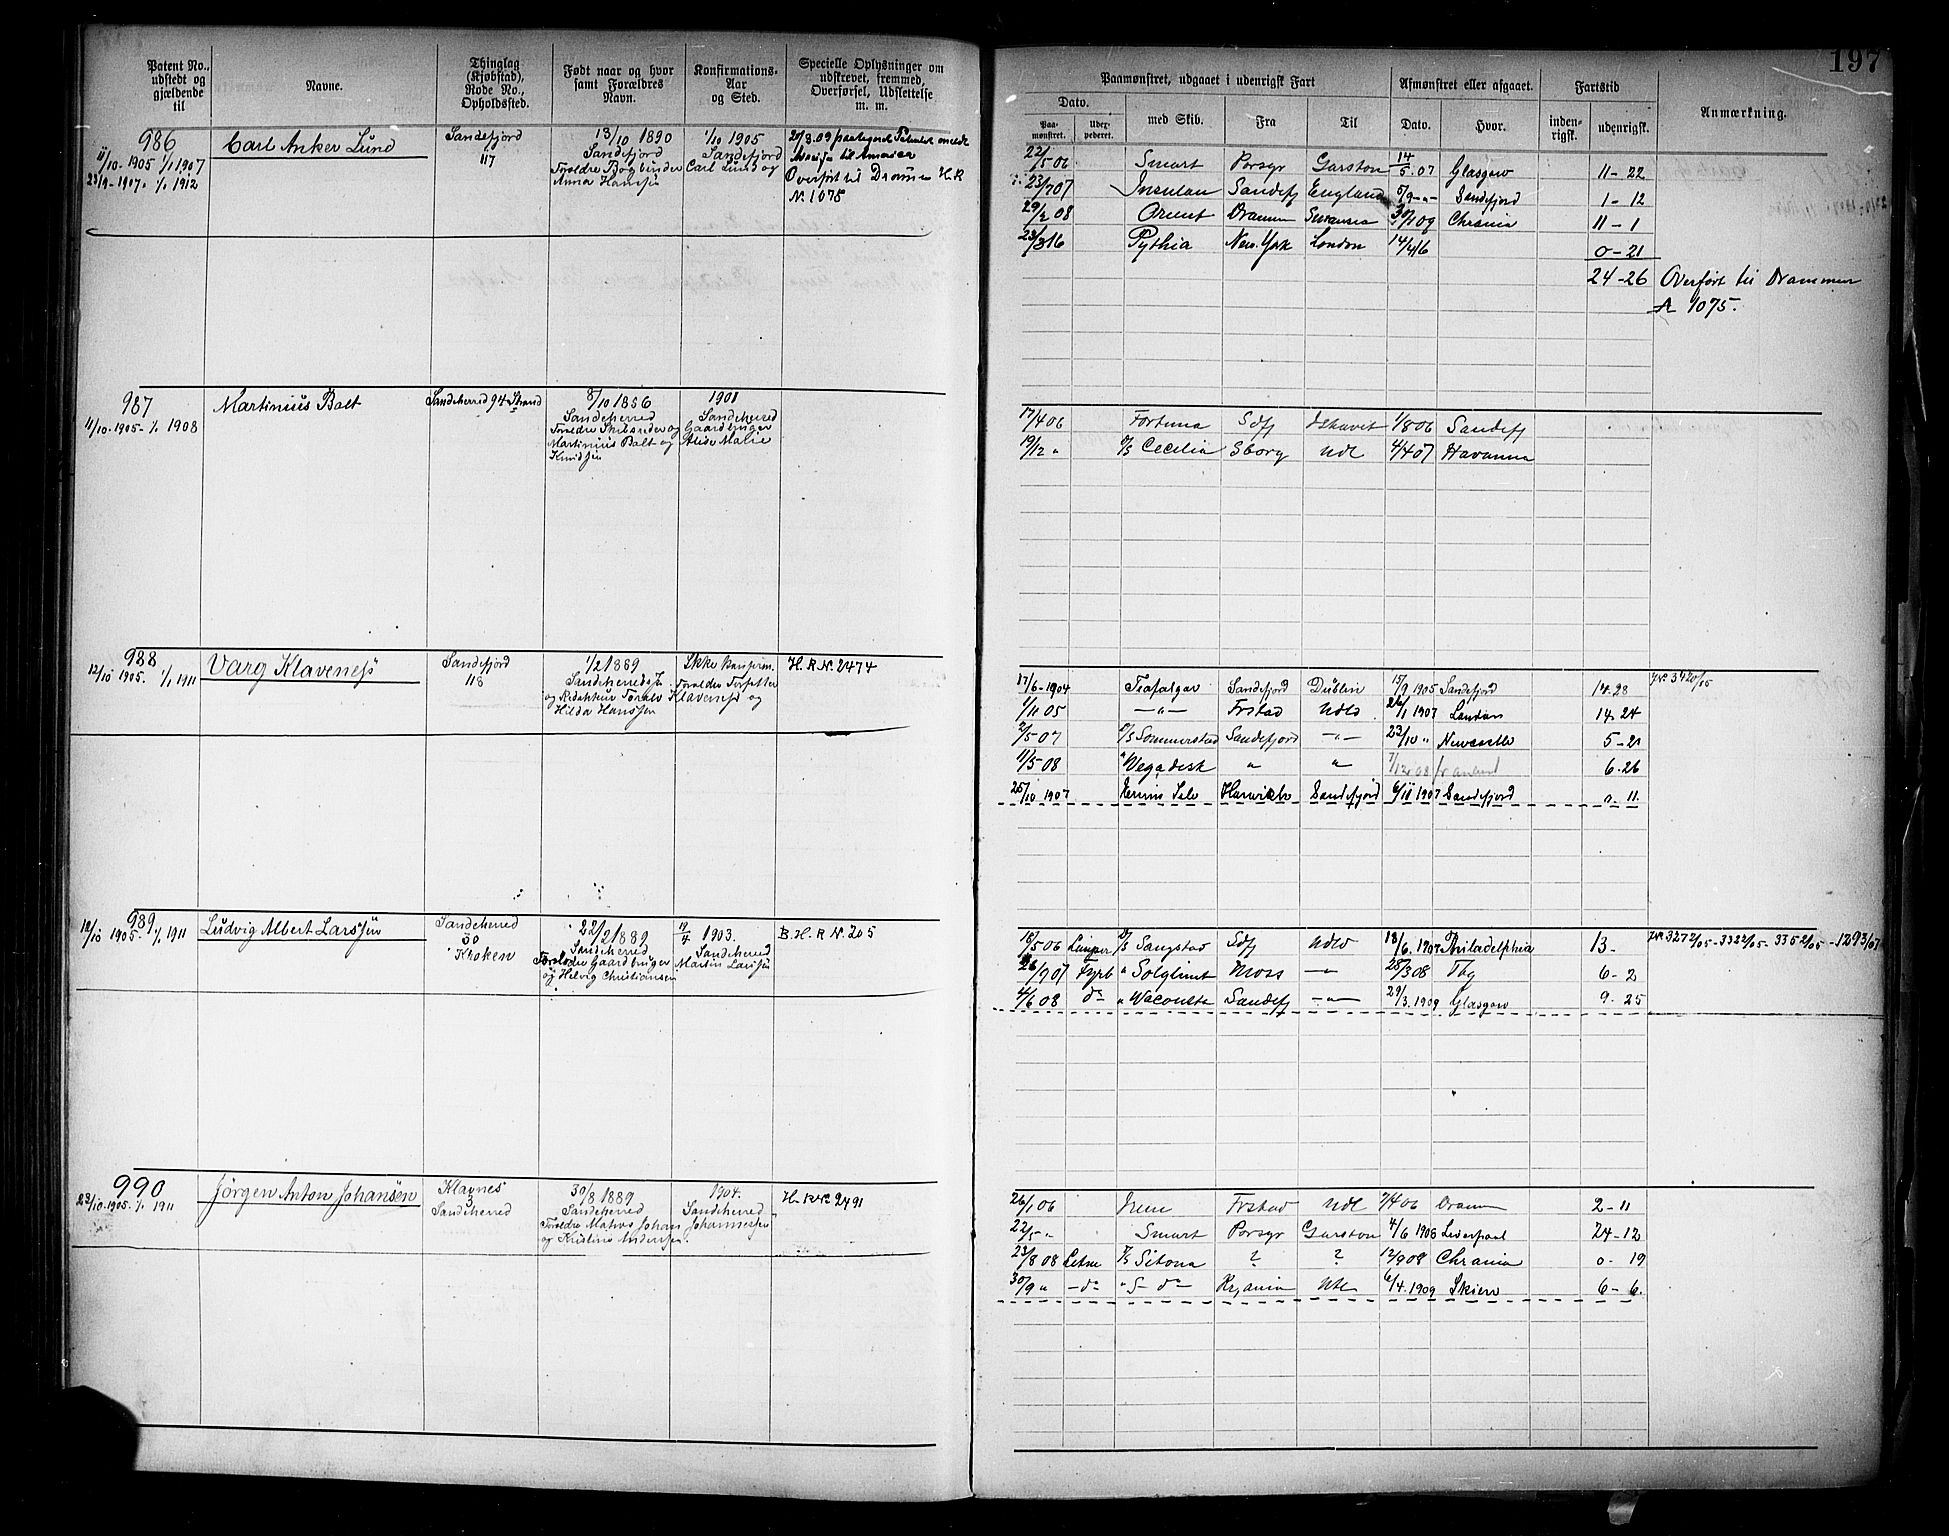 197
Patent No., udstedt og gjældende til
Navne.
Thinglag (Kjøbstad), Rode No., Opholdssted.
Født naar og hvor samt Forældres Navn.
Konfirmations-Aar og Sted.
Specielle Oplysninger om udskrevet, fremmed, Overførsel, Udslettelse m. m.
Paamønstret, udgaaet i udenrigsk Fart
Afmønstret eller afgaaet.
Fartstid
Anmærkning.
Dato.
Paa-mønstret.
med Skib.
Fra
Til
Dato.
Hvor.
inden-rigsk.
udenrigsk.
986
11/10 1905 1/1 1907
23/9 1907 1/1 1912
Carl Anker Lund
Sandefjord
117
13/10 1890
Sandefjord
Forældre Bogbinder Carl Lund og
Anna Hansen
1/10 1905
Sandefjord
Overført til Drammen H.R
N. 1075
22/5 06 Smart Porsgr Garston 14/5 07 Glasgow 11-22
23/7 07 Insulan Sandefj England Sandefjord 1-12
29/2 08 Orient Dramm Swansea 30/1 09 Chrania 11-1
23/3 16 Pythia New. York London 14/4 16 0-21
24-26 Overført til Drammen
1075.
987
11/10 1905 - 1/1 1908
Martinius Balt
Sandeherred 94 Strand
8/10 1856
Sandeherred
Martinius Balt og Alide Malie
Knudsen
1901
Sandeherred
17/4 06 Fortuna Sdfj Ishavet 1/8 06 Sandefj
19/12 " D/S Cecilia Sborg Udl 4/4 07 Havanna
988
12/10 1905. 1/1 1911
Varg Klavenes
Sandefjord
118
1/2 1889
Sandeherred
og Redaktør Toralv Klaveness og
Hilda Hanssen
Ikke
H. R N. 2474
17/6-1904 Trafalgar Sandefjord Dublin 15/9 1905 Sandefjord 14-28
1/11 05 -"- Frstad Udld 26/1 1907 London 14-24
2/5-07 D/S Sommerstad Sandefjord -"- 23/10 " Newcastle 5-21
11/5-08 " Wegadesk " " 7/12 08 6-26
25/10 1907 Sandefjord 6/11 1907 Sandefjord 0. 11.
989
12/10 1905. 1/1 1911
Ludvig Albert Larssen
Sandeherred
50
Kroken
22/2 1889
Sandeherred
Forældre Gaardbruger Martin Larssen
og Helvig Christiansen
1903.
Sandeherred
B. H. R N. 205
18/5 06 Lemper D/S Sangstad Sdfj Udld 18/6 1907 Philadelphia 13-
26/9 07 Fyrb " Solglimt Moss -"- 28/3 08 Tbg 6-2
4/6 08 do " Waconsta Sandefj -"- 29/3. 1909 Glasgow 9-25
990
23/10 1905. 1/1 1911
Jörgen Anton Johansen
Klavnes
3
Sandeherred
30/8 1889
Sandeherred
Forældre Matros Johan Johannessen
og Kristine Andersen.
1904.
Sandeherred
H. R N. 2491
26/1 06 Irene Frstad Udl 7/4 06 Dramm 2-11
22/5 " Smart Porsgr Garston 4/6 1908 Liverpool 24-12
23/8 08 D/S Sitona ? ? 12/9 08 Chrania 0-19
30/9 " -do- " S- do- Krjania Utl 6/4. 1909 Skien 6-6.